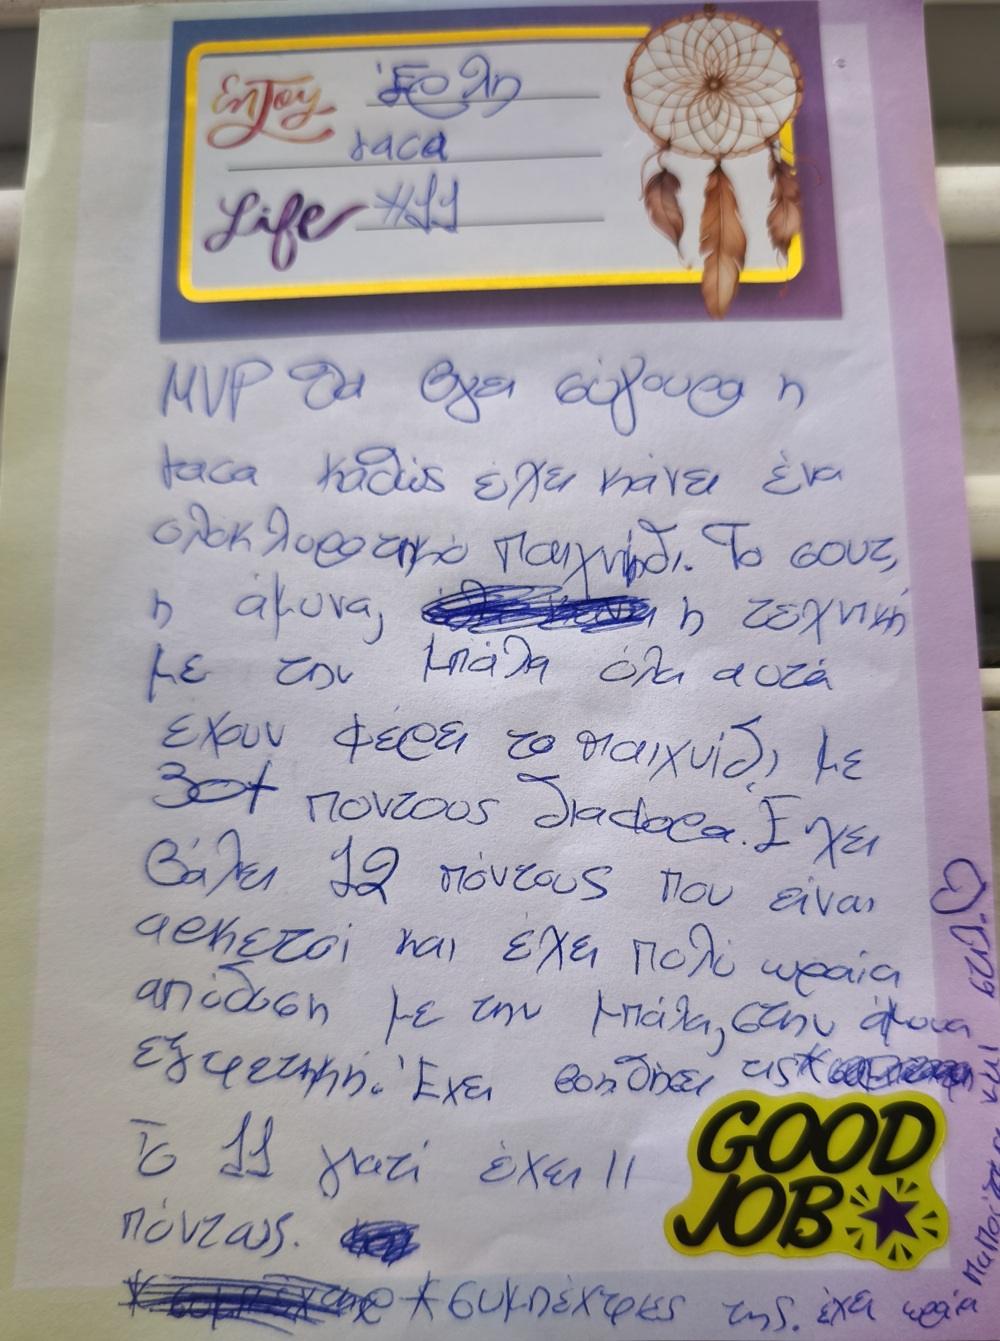 Enjoy Έφλη
taca
Life #11
MVP θα βγει σύγουρα η
taca καθώς έχει κάνει ένα
ολοκλυροτικό παιχνίδι. Το σουτ,
η άμυνα, η τεχνική
με την μπάλα όλα αυτά
έχουν φέρει το παιχνίδι με
30+ ποντους διαφορα. Έχει
βάλει 12 πόντους που είναι
αρκετοί και έχει πολύ ωραία
απόδωση με την μπάλα, στην άμυνα
εξερετηκή. Έχει βοηθήσει τις*
Το 11 γιατί έχει 11
πόντους.
GOOD
JOB
* συμπέχτριες της. έχει ωραία
και στυλ.♡